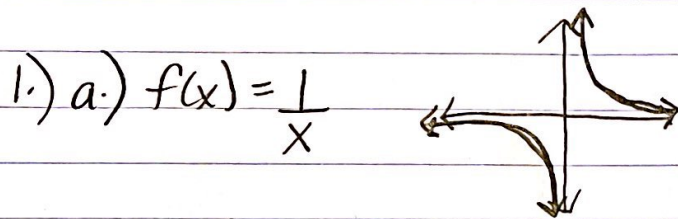 1.) a.) f(x) = 1/x